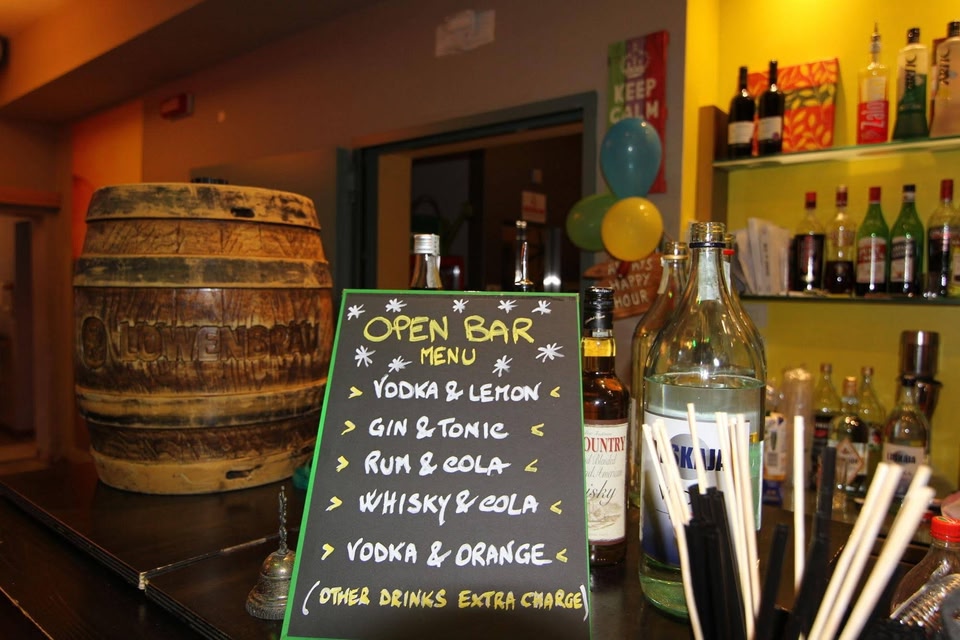 KEEP
CALM
ALWAYS
HAPPY
HOUR
LÖWENBRÄU
OPEN BAR
MENU
> VODKA & LEMON <
> GIN & TONIC <
> RUM & COLA <
> WHISKY & COLA <
> VODKA & ORANGE <
(OTHER DRINKS EXTRA CHARGE)
OUNTRY
isky